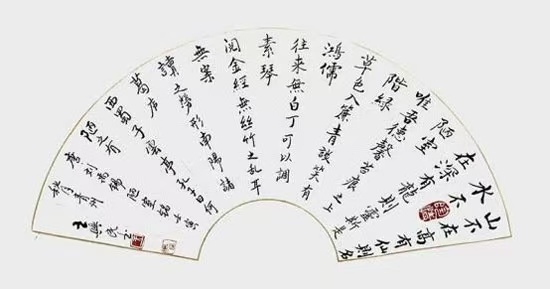 山不在高有仙則名
水不
在深有龍則靈斯是
陋室
唯吾德馨苔痕之上
階綠
草色入簾青談笑有
鴻儒
往來無白丁可以調
素琴
閱金經無絲竹之亂耳
無案
牘之勞形南陽諸
葛庐
西蜀子雲亭孔子曰何
陋之有
唐刘禹锡陋室铭